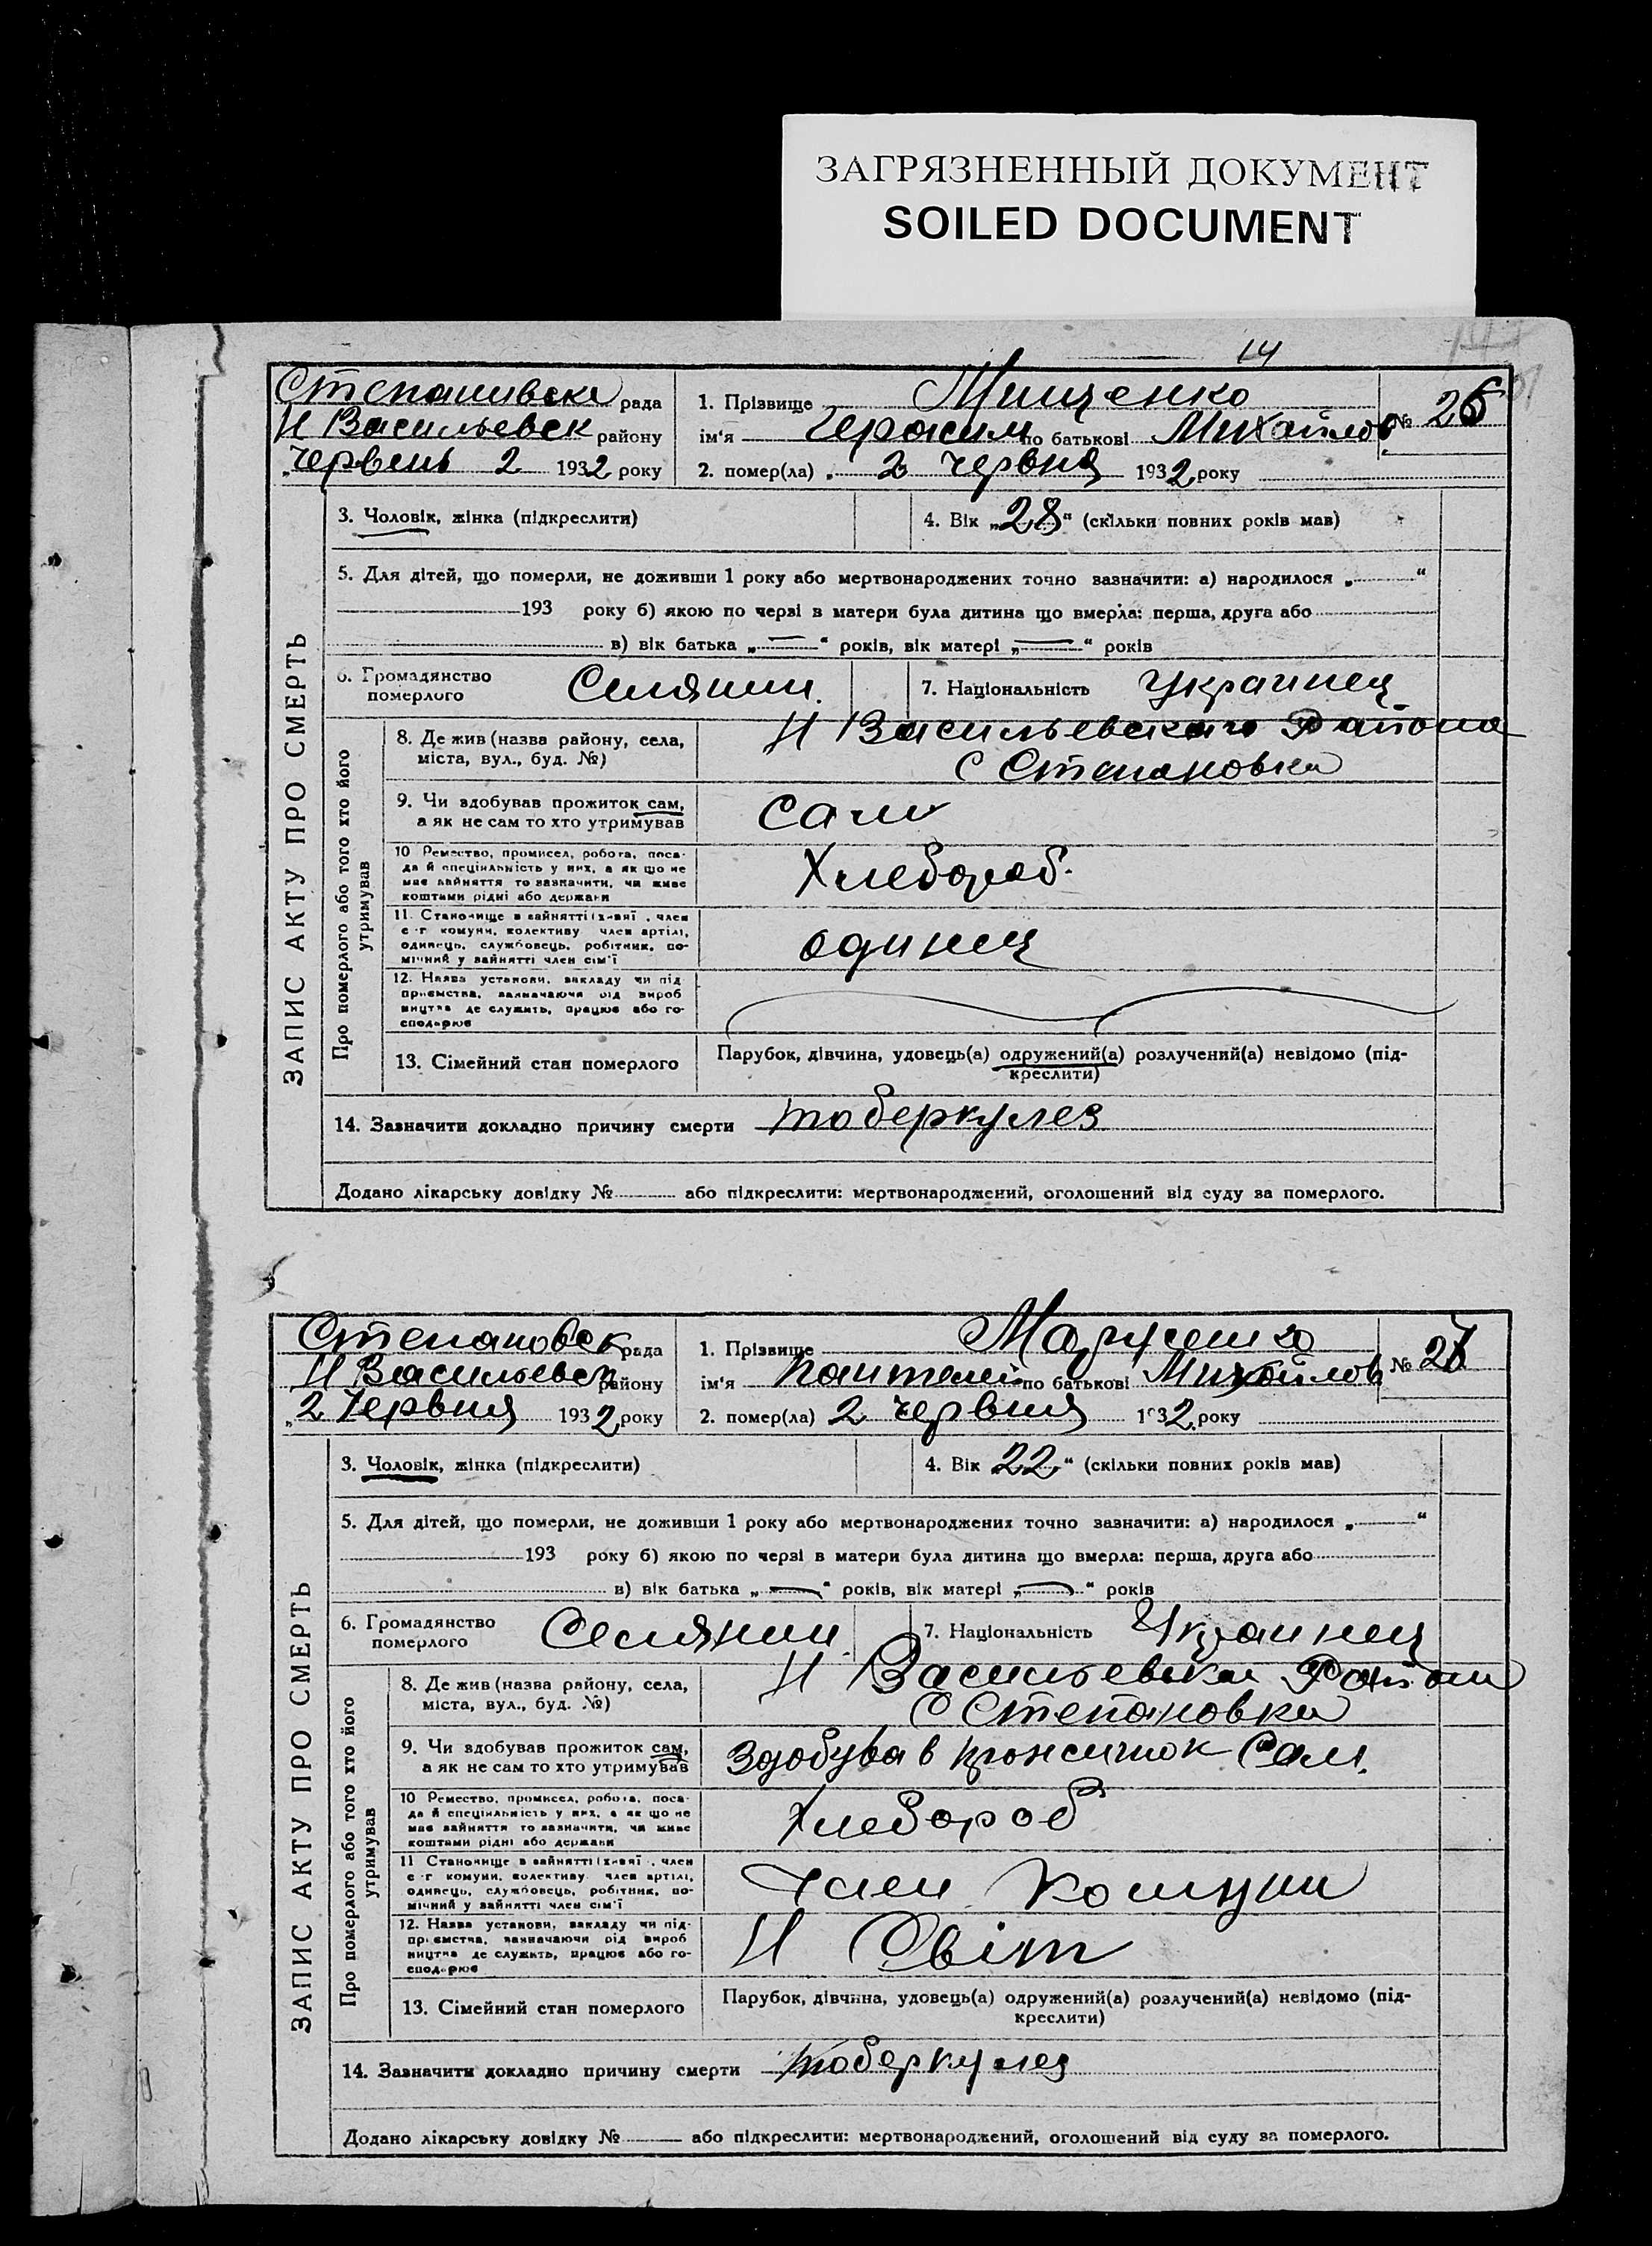 ЗАГРЯЗНЕННЫЙ ДОКУМЕНТ
SOILED DOCUMENT
14
ЗАПИС АКТУ ПРО СМЕРТЬ
Степанивска рада
Н Васильевск району
„Червень 2 1932 року
1. Прізвище Мищенко
ім'я Герасим по батькові Михайлов
№ 26
2. помер(ла) „ 2 червня 1932 року
3. Чоловік, жінка (підкреслити)
4. Вік „28“ (скільки повних років мав)
5. Для дітей, що померли, не доживши 1 року або мертвонароджених точно зазначити: а) народилося „ “
193 року б) якою по черзі в матери була дитина що вмерла: перша, друга або
в) вік батька „—“ років, вік матері „—“ років
6. Громадянство померлого Селянин.
7. Національність Украинец
Про померлого або того хто його утримував
8. Де жив (назва району, села, Н Васильевскаго Района
міста, вул., буд. №) с Степановка
9. Чи здобував прожиток сам, сам
а як не сам то хто утримував
10 Ремество, промисел, робота, поса-
да й спеціяльність у них, а як що не Хлебороб.
має зайняття то зазначити, чи живе
коштами рідні або держави
11. Становище в зайнятті (х-вяї, член
с-г комуни, колективу член артілі, одинец
одинець, службовець, робітник, по-
мічний у зайнятті член сім'ї
12. Назва установи, закладу чи під-
приємства, зазначаючи від вироб
ництва де служить, працює або го-
сподарює
13. Сімейний стан померлого
Парубок, дівчина, удовець(а) одружений(а) розлучений(а) невідомо (під-
креслити)
14. Зазначити докладно причину смерти тоберкулез
Додано лікарську довідку № або підкреслити: мертвонароджений, оголошений від суду за померлого.
ЗАПИС АКТУ ПРО СМЕРТЬ
Степановск рада
Н Васильевск району
„2 Червня 1932 року
1. Прізвище
ім'я Пантелей по батькові Михайлов
№ 27
2. помер(ла) 2 червня 1932 року
3. Чоловік, жінка (підкреслити)
4. Вік 22“ (скільки повних років мав)
5. Для дітей, що померли, не доживши 1 року або мертвонароджених точно зазначити: а) народилося „ “
193 року б) якою по черзі в матери була дитина що вмерла: перша, друга або
в) вік батька „—“ років, вік матері „—“ років
6. Громадянство померлого Селянин.
7. Національність Украинец
Про померлого або того хто його утримував
8. Де жив (назва району, села, Н Васильевки Район
міста, вул., буд. №) С Степановка
9. Чи здобував прожиток сам, Здобував прожиток Сам.
а як не сам то хто утримував
10 Ремество, промисел, робота, поса-
да й спеціяльність у них, а як що не Хлебороб
має зайняття то зазначити, чи живе
коштами рідні або держави
11 Становище в зайнятті (х-вяї, член
с-г комуни, колективу член артілі, Член Комуни
одинець, службовець, робітник, по-
мічний у зайнятті член сім'ї
12. Назва установи, закладу чи під-
приємства, зазначаючи рід вироб Н Світ
ництва де служить, працює або го-
сподарює
13. Сімейний стан померлого
Парубок, дівчина, удовець(а) одружений(а) розлучений(а) невідомо (під-
креслити)
14. Зазначити докладно причину смерти тоберкулез
Додано лікарську довідку № або підкреслити: мертвонароджений, оголошений від суду за померлого.